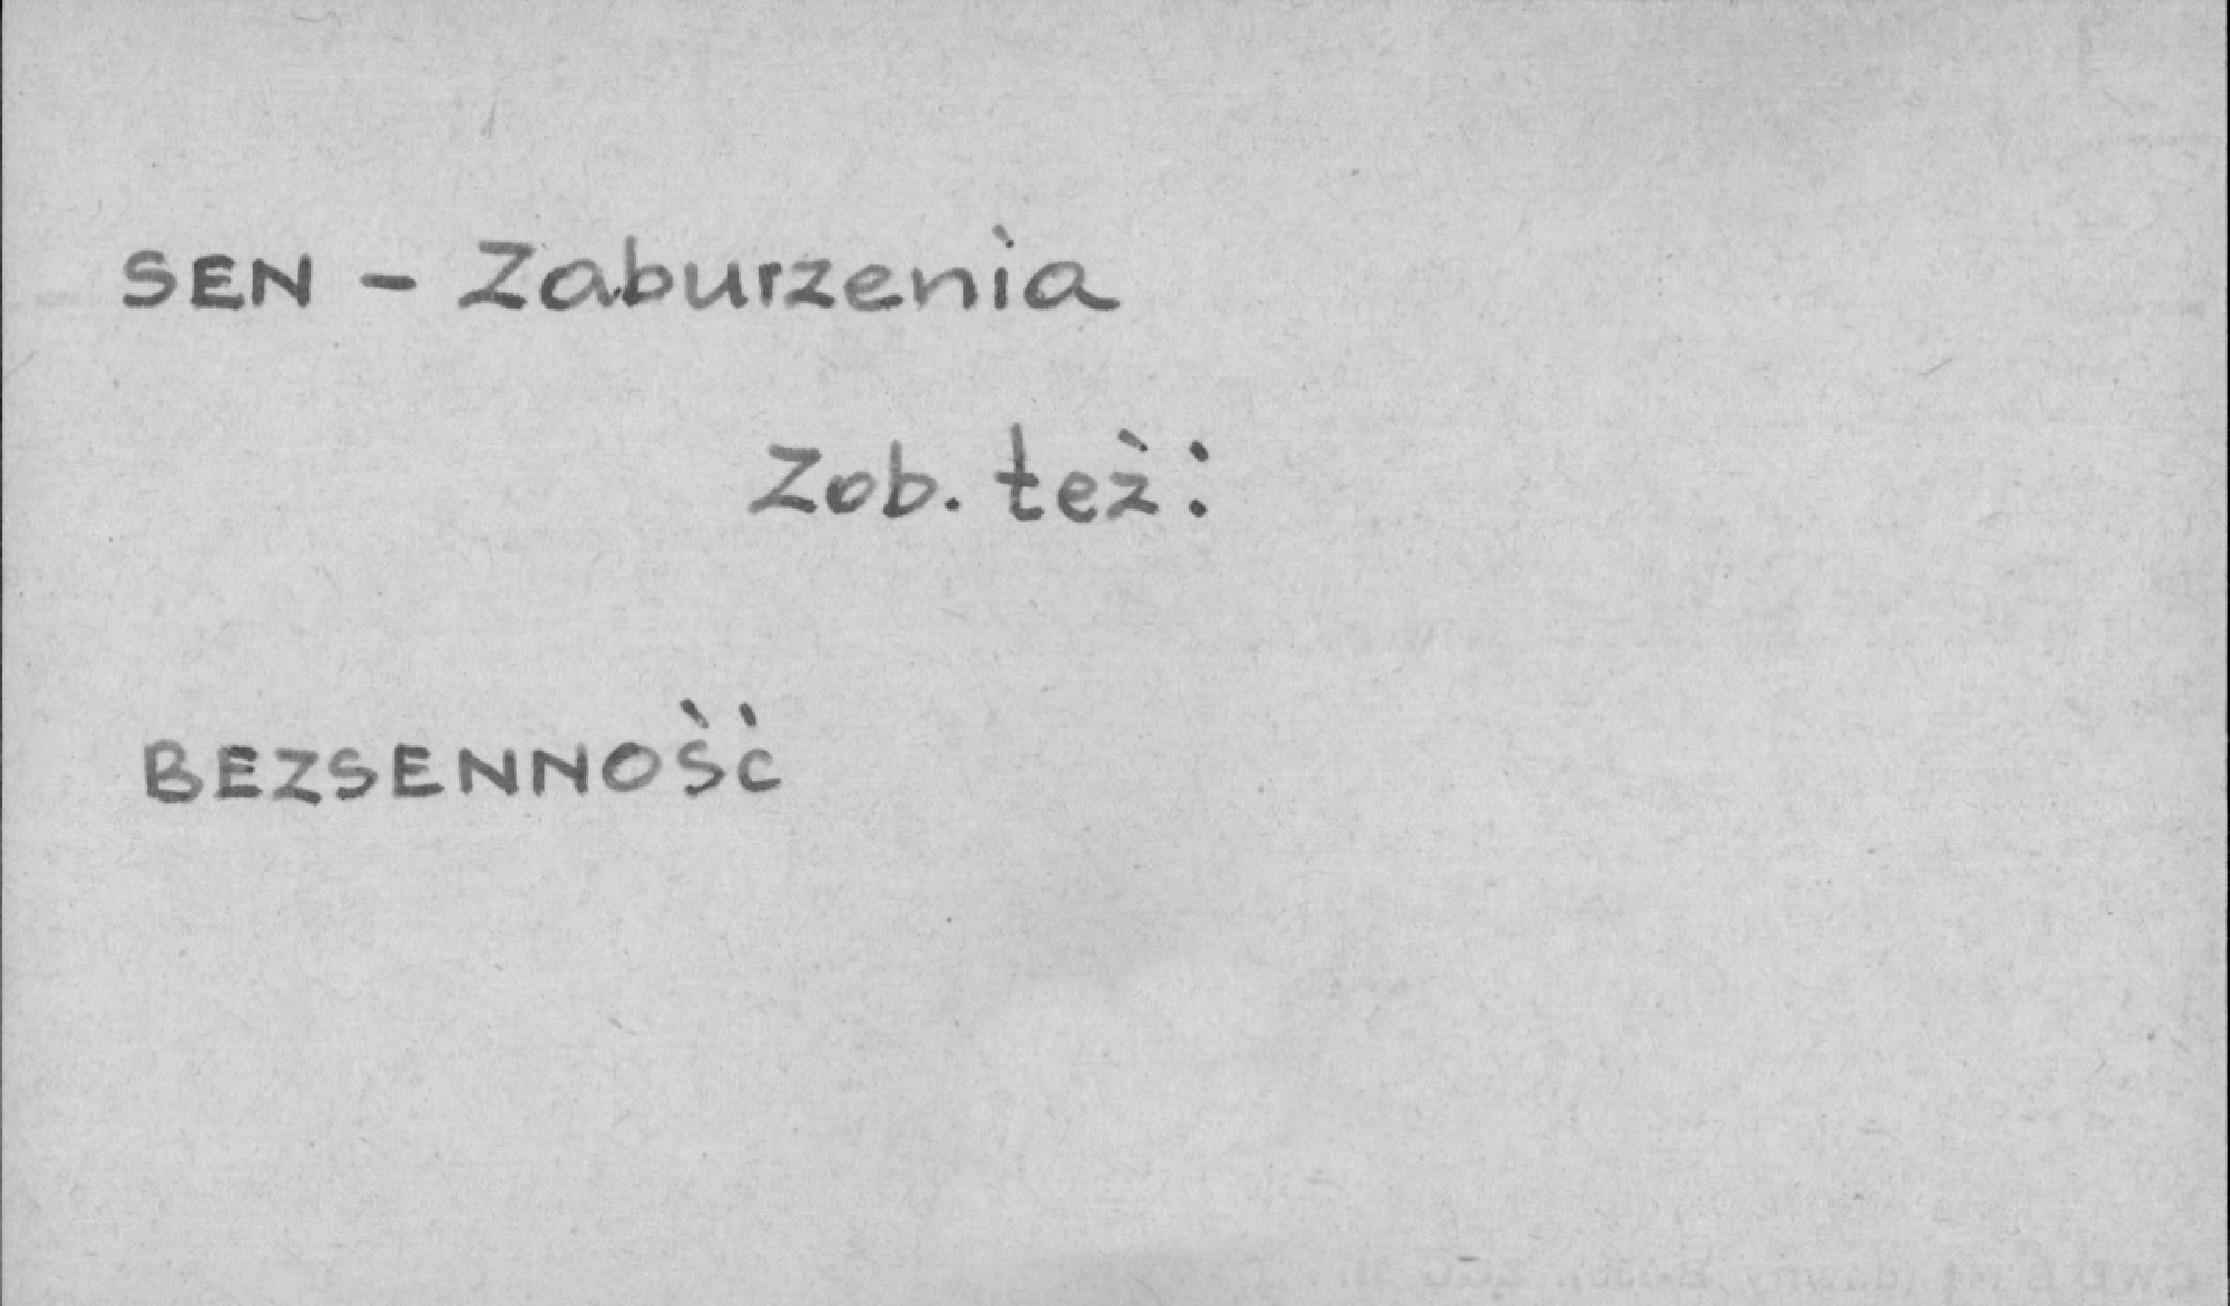 SEN - Zaburzenia
Zob. też:
BEZSENNOŚĆ